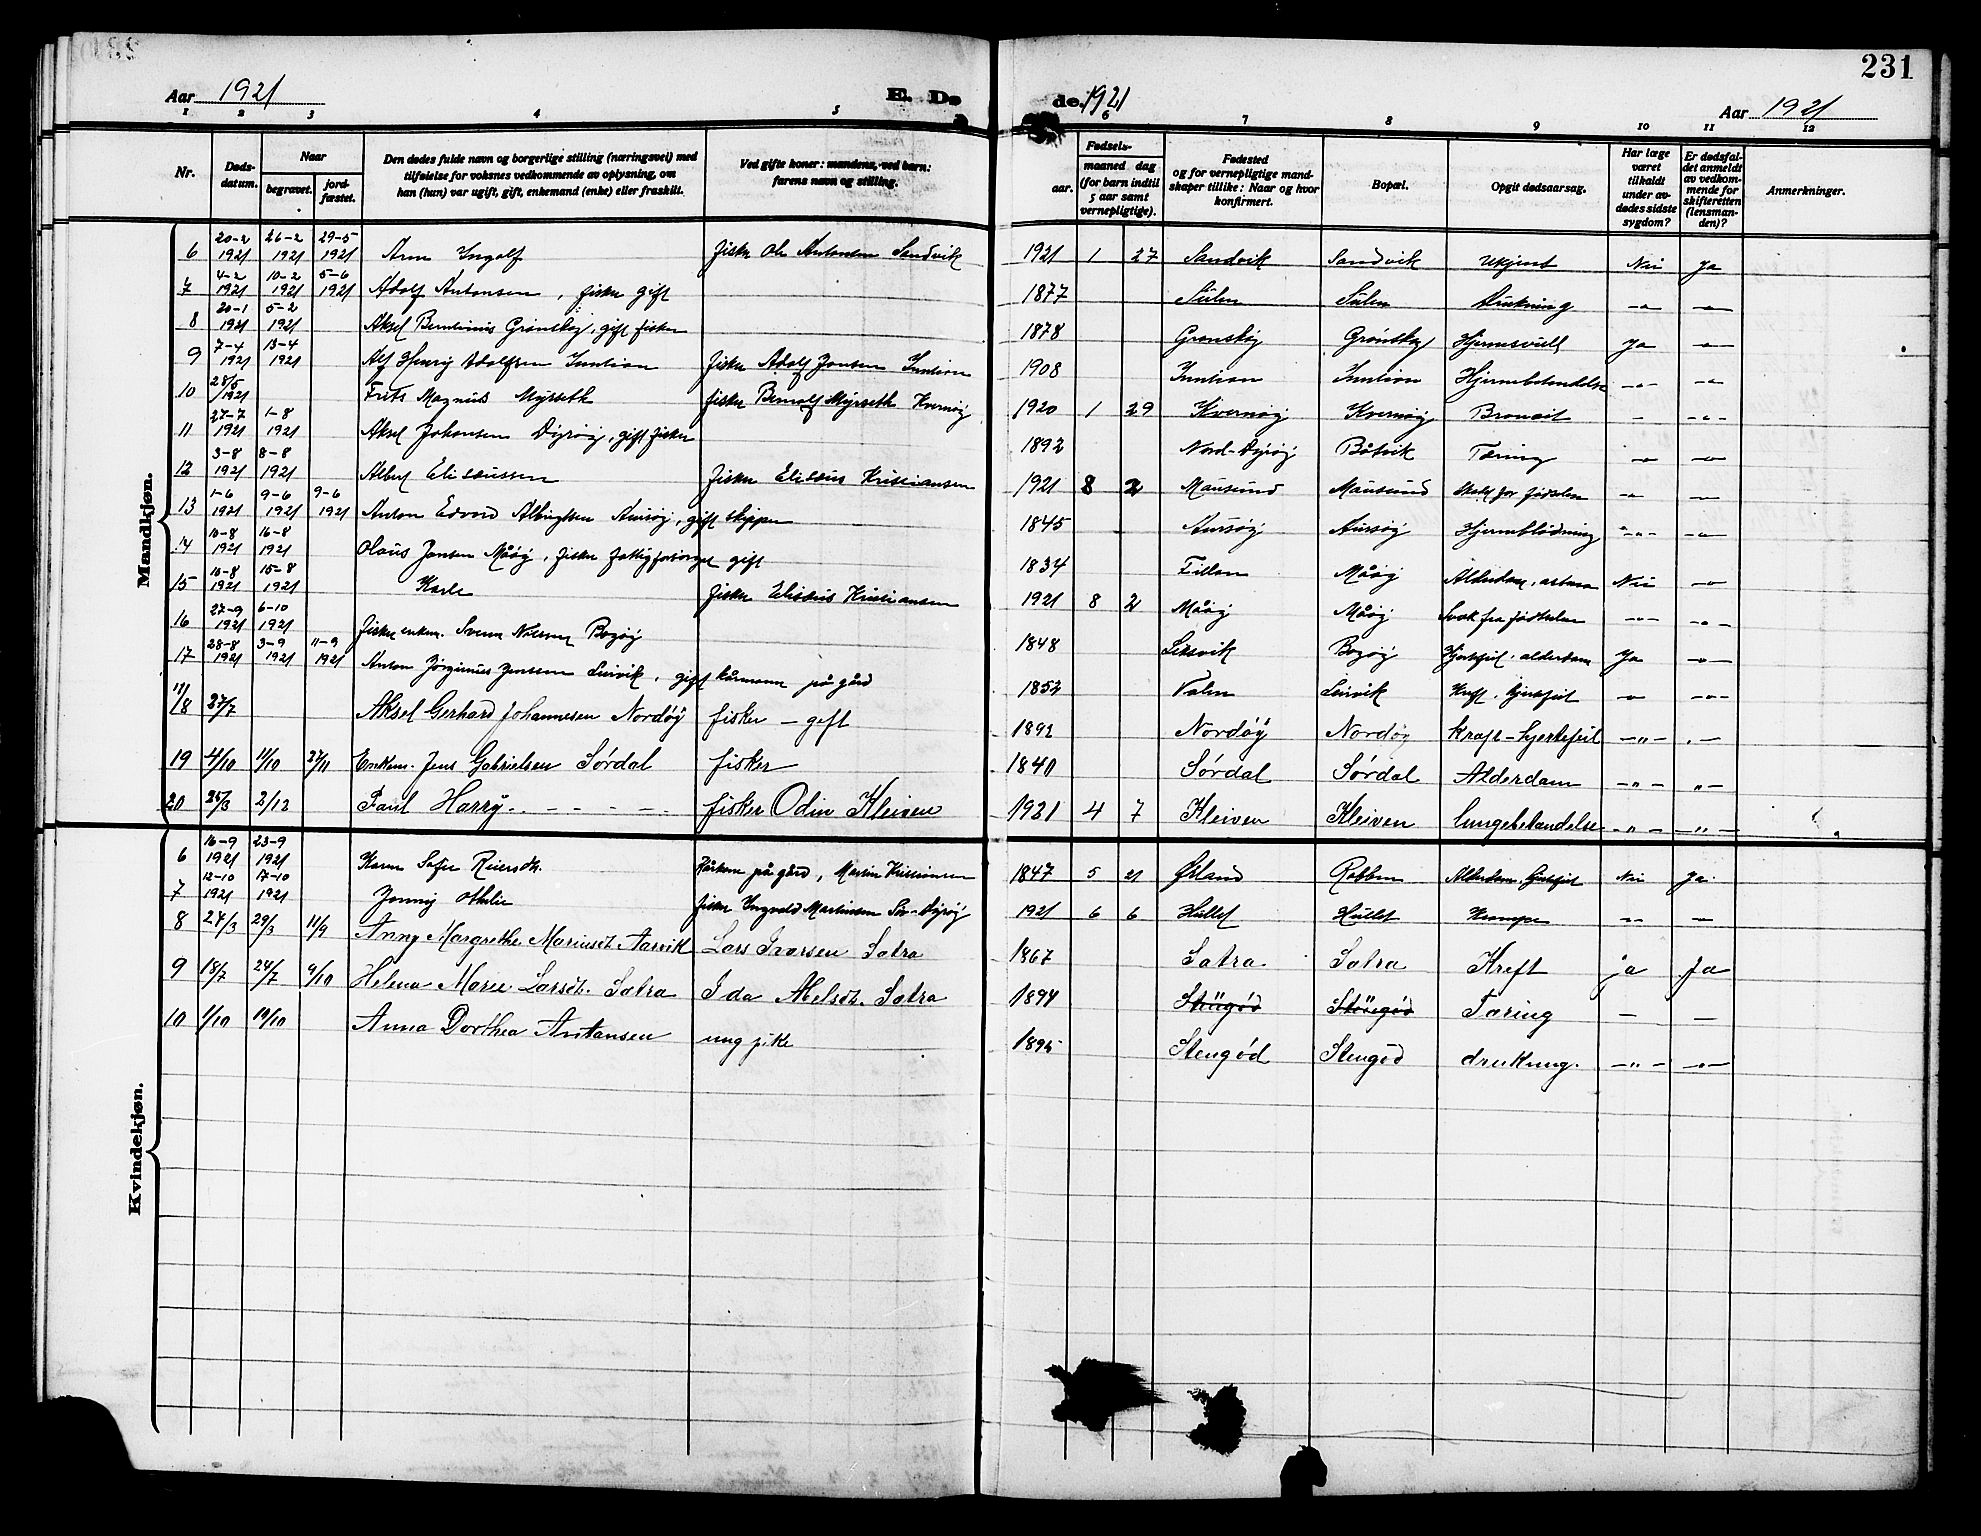 231
Aar 1921 E. Dø de. 1921 Aar 1921
1 2 3 4 5 6 7 8 9 10 11 12
Nr.
Døds-datum.
Naar
begravet.
jord-fæstet.
Den dødes fulde navn og borgerlige stilling (næringsvei) med
tilføielse for voksnes vedkommende av oplysning, om
han (hun) var ugift, gift, enkemand (enke) eller fraskilt.
Ved gifte koner: mandens, ved barn:
farens navn og stilling.
Fødsels-
aar.
maaned dag
(for barn indtil
5 aar samt
vernepligtige).
Fødested
og for vernepligtige mand-
skaper tillike: Naar og hvor
konfirmert.
Bopæl.
Opgit dødsaarsag.
Har læge
været
tilkaldt
under av-
dødes sidste
sygdom?
Er dødsfal-
det anmeldt
av vedkom-
mende for
skifteretten
(lensman-
den)?
Anmerkninger.
Mandkjøn.
6 20-2 1921 26-2 1921 29-5 1921 Arne Ingolf fisker Ole Antonsen Sandvik 1921 1 27 Sandvik Sandvik Ukjent Nei Ja
7 4-2 1921 10-2 1921 5-6 1921 Adolf Antonsen, fisker gift 1877 Sulen Sulen Drukning -"- -"-
8 20-1 1921 5-2 1921 Aksel Grønskög, gift fisker 1878 Grønskög Grønskög Ja -"-
9 7-4 1921 13-4 1921 Alf Henrig Adolfsen Inntian fisker Adolf Jensen Inntian 1908 Inntian Inntian Hjernebetendelse -"- -"-
10 28/5 1921 Frits Magnus Myrseth fisker Bernolf Myrseth Kvernöy 1920 1 29 Kvernöy Kvernöy - -"-
11 27-7 1921 1-8 1921 Aksel Johansen Dyröy, gift fisker 1892 Nord-Dyröy Båtvik Tæring -"- -"-
12 3-8 1921 8-8 1921 Albert Eliseussen fisker Eliseus Kristiansen 1921 8 2 Mausund Mausund fødselen -"- -"-
13 1-6 1921 9-6 1921 9-6 1921 Anton Edvard Albrigtsen Aursøy, gift skipper 1845 Aursøy Aursøy Hjerneblödning -"- -"-
14 10-8 1921 16-8 1921 Olaus Jensen Måöy, fisker fattigforsorget gift 1834 Fillan Måöy Alderdom, astma Nei -"-
15 10-8 1921 15-8 1921 Karle fisker Eliseus Kristiansen 1921 8 2 Måöy Måöy Svak fra fødselen -"- -"-
16 27-9 1921 6-10 1921 fisker enkem. Svenn Nilsen Bogöy 1848 Leksvik Bogöy Hjertefeil, alderdom Ja -"-
17 28-8 1921 3-9 1921 11-9 1921 Anton Jörginius Jenssen Leirvik, gift kårmann på gård 1852 Valen Leirvik Kreft, hjertefeil -"- -"-
18 27/7 Aksel Gerhard Johannesen Nordöy fisker - gift 1892 Nordöÿ Nordöy kraft-hjertefeil -"- -"-
19 4/10 11/10 27/11 Enkem. Jens Gabrielsen Sørdal fisker 1840 Sørdal Sørdal Alderdom -"- -"-
20 25/3 2/12 Paul Harry fisker Odin Kleiven 1921 4 7 Kleiven Kleiven lungebetendelse -"- -"-
Kvindekjøn.
6 16-9 1921 23-9 1921 Karen Sofie Reiersdt. Kårkone på gård, Martin Kristiansen 1847 5 21 Ørland Rabben Alderdom, hjertefeil Nei Ja.
7 12-10 1921 17-10 1921 Jenny Othelie fisker Ingvald Martinsen Sør-Dyröy 1921 6 6 Hullet Hullet Krampe -"- -"-
8 24/3 29/3 11/9 Anny Margrethe Mariusdt. Aarvik Lars Ivarsen Satra 1867 Satra Satra Kreft ja Ja
9 18/7 24/7 9/10 Helena Marie Larsdt. Satra Ida Abelsdt. Satra 1894 Tæring - -
10 1/10 19/10 Anna Dorthea Antonsen ung pike 1895 Stengød Stengød drukning. -"- -"-